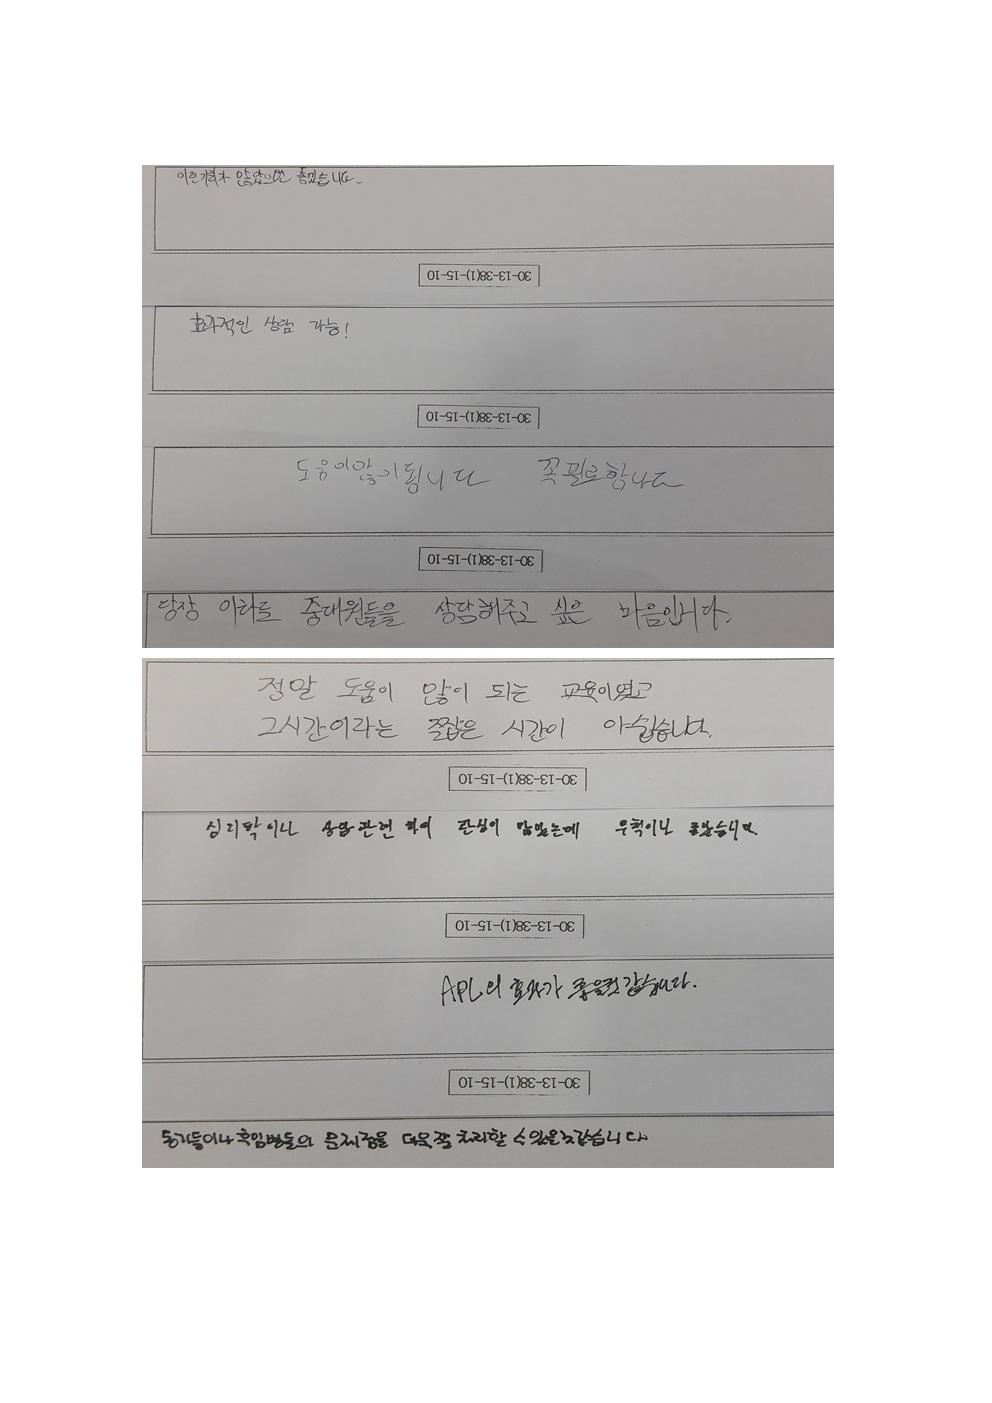 이런기회가 많았으면 좋겠습니다.
30-13-38(1)-15-10
효과적인 상담 가능!
30-13-38(1)-15-10
도움이많이됩니다 꼭필요합니다
30-13-38(1)-15-10
당장 이라도 중대원들을 상담해주고 싶은 마음입니다.
정말 도움이 많이 되는 교육이였고
그시간이라는 짧은 시간이 아쉽습니다.
30-13-38(1)-15-10
심리학이나 상담관련 하여 관심이 많았는데 좋았습니다.
30-13-38(1)-15-10
APL의 효과가 좋을것 같습니다.
30-13-38(1)-15-10
동기들이나 후임병들의 문제점을 더욱 잘 처리할 수 있을것같습니다